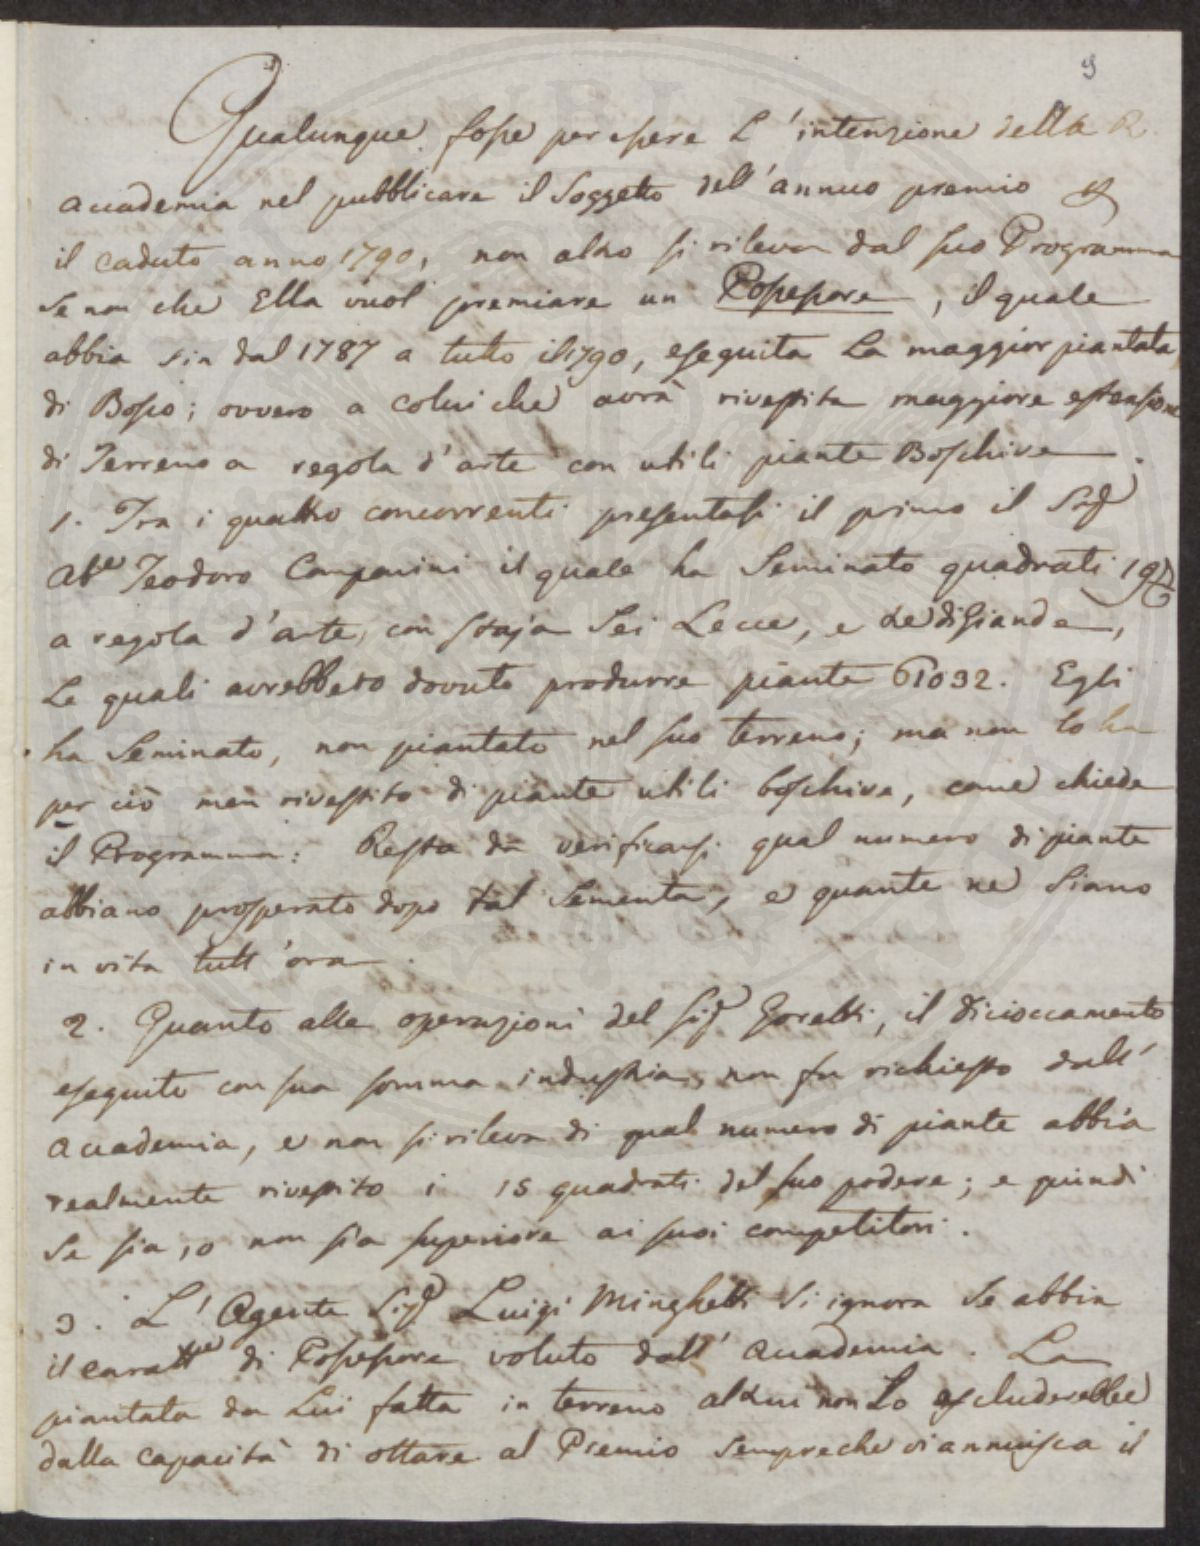 9
Qualunque fosse per essere l'intenzione della R.
Accademia nel pubblicare il Soggetto dell'annuo premio
il caduto anno 1790, non altro si rileva dal suo Programma
se non che Ella vuol premiare un Possessore, il quale
abbia sin dal 1787 a tutto il 1790, eseguita la maggior piantata
di Bosco; ovvero a colui che avrà rivestita maggiore estensione
di Terreno a regola d'arte con utili piante Boschive.
1. Tra i quattro concorrenti presentasi il primo il Sig.r
Ab.e Teodoro Campanini il quale ha Seminato quadrati 19
a regola d'arte, con staja Sei Lecce, e di Giande,
le quali avrebbero dovuto produrre piante 61032. Egli
ha Seminato, non piantato nel suo terreno; ma non lo ha
per ciò men rivestito di piante utili boschive, come chiede
il Programma: Resta da verificarsi qual numero di piante
abbiano prosperato dopo tal Sementa, e quante ne Siano
in vita tutt'ora.
2. Quanto alle operazioni del Sig.r Goretti, il dicioccamento
eseguito con sua somma industria, non fu richiesto dall'
Accademia, e non si rileva di qual numero di piante abbia
realmente rivestito i 15 quadrati del suo podere; e quindi
se sia, o non sia superiore ai suoi competitori.
3. L'Agente Sig.r Luigi Minghetti si ignora se abbia
il caratt.re di Possessore voluto dall'Accademia. La
piantata da Lui fatta in terreno altrui non Lo escluderebbe
dalla capacità di ottare al Premio sempreche vi annuisca il